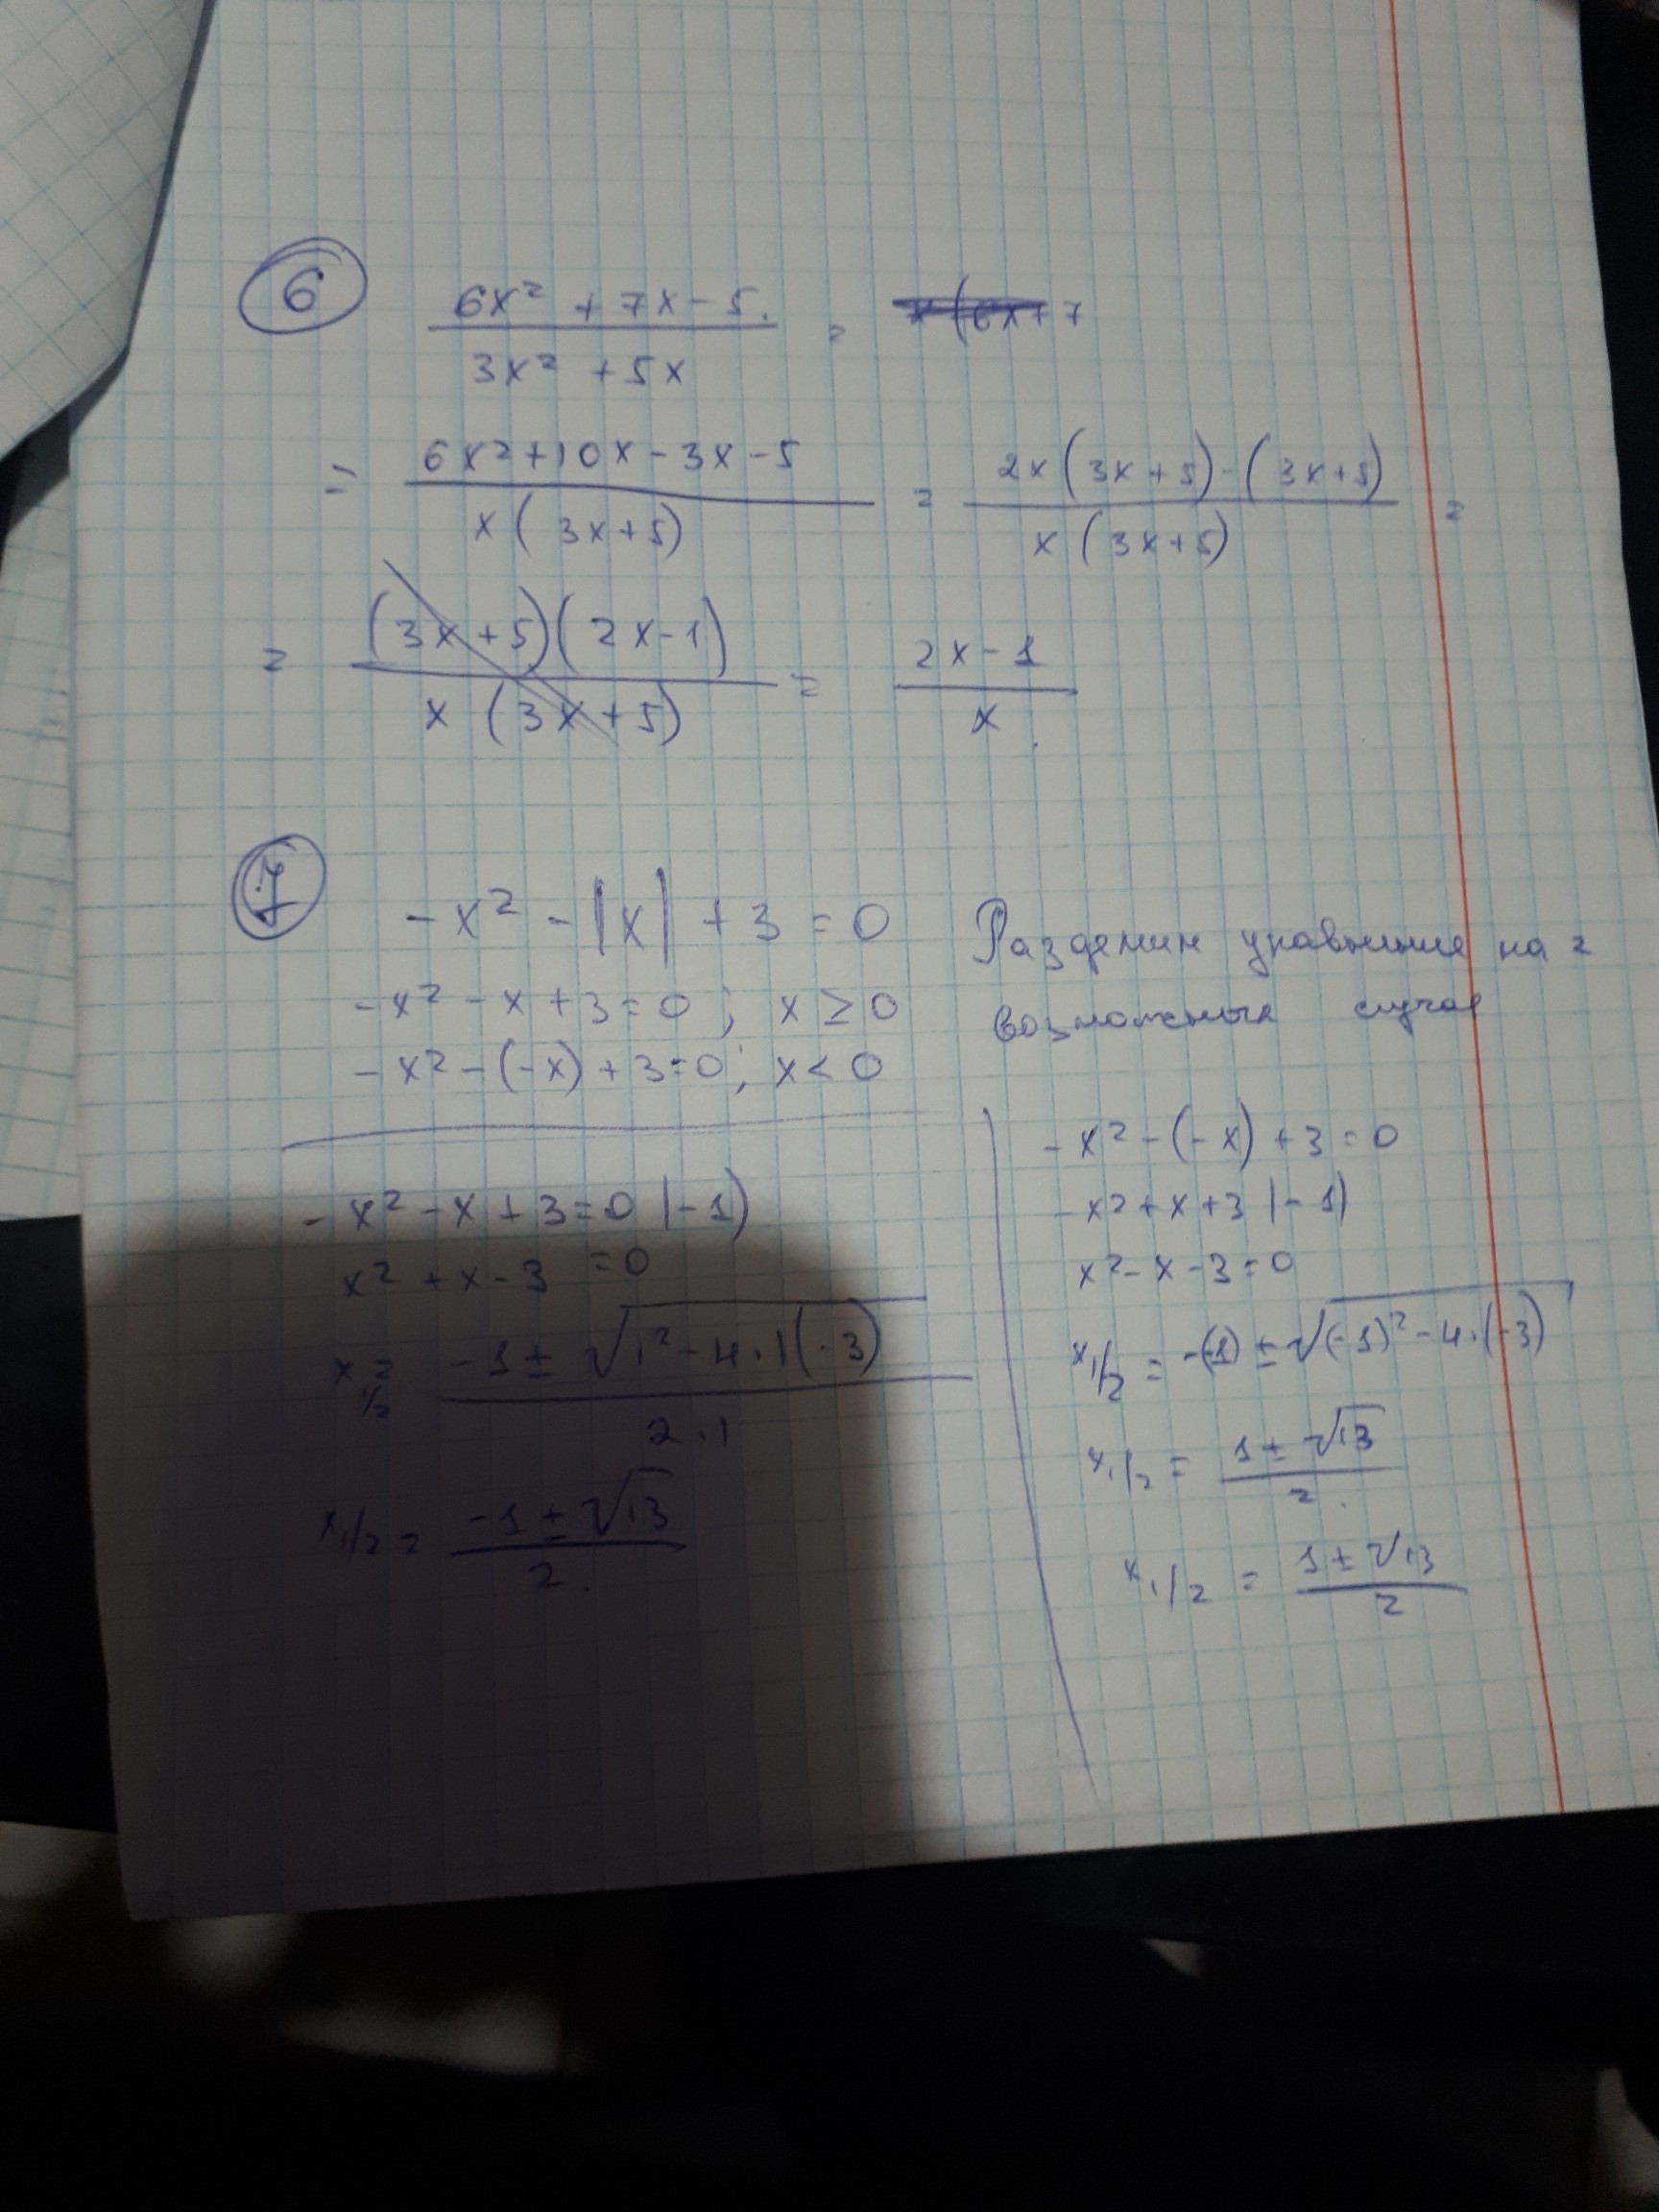 6
6x² + 7x - 5. / 3x² + 5x = x(6x+ 7
= 6x²+10x-3x-5 / x(3x+5) = 2x(3x+5)-(3x+5) / x(3x+5) =
= (3x+5)(2x-1) / x(3x+5) = 2x-1 / x
7
-x² - |x| + 3 = 0 Разделим уравнение на 2
-x² - x + 3 = 0; x ≥ 0 возможных случая
-x² - (-x) + 3 = 0; x < 0
-x² - x + 3 = 0 |-1)
x² + x - 3 = 0
x1/2 = -1 ± √(1² - 4·1(-3)) / 2·1
x1/2 = -1 ± √13 / 2.
-x² - (-x) + 3 = 0
-x² + x + 3 |-1)
x² - x - 3 = 0
x1/2 = -(-1) ± √((-1)² - 4·(-3))
x1/2 = 1 ± √13 / 2.
x1/2 = 1 ± √13 / 2